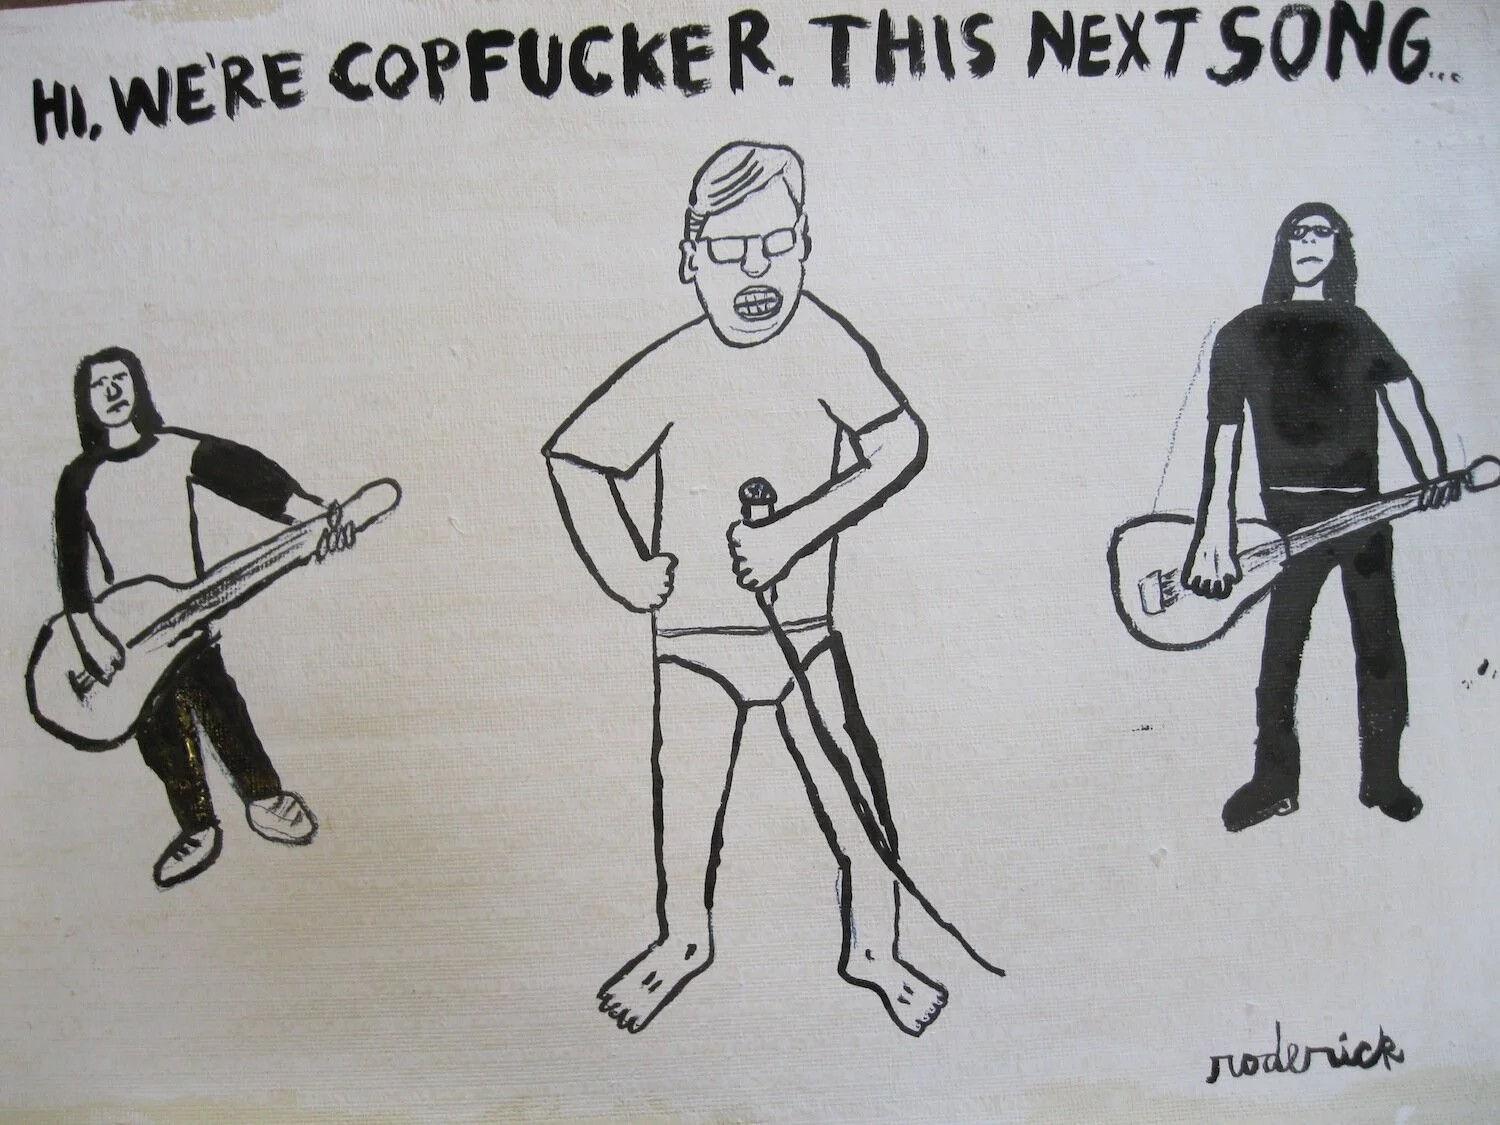 HI, WE'RE COPFUCKER. THIS NEXT SONG...
roderick